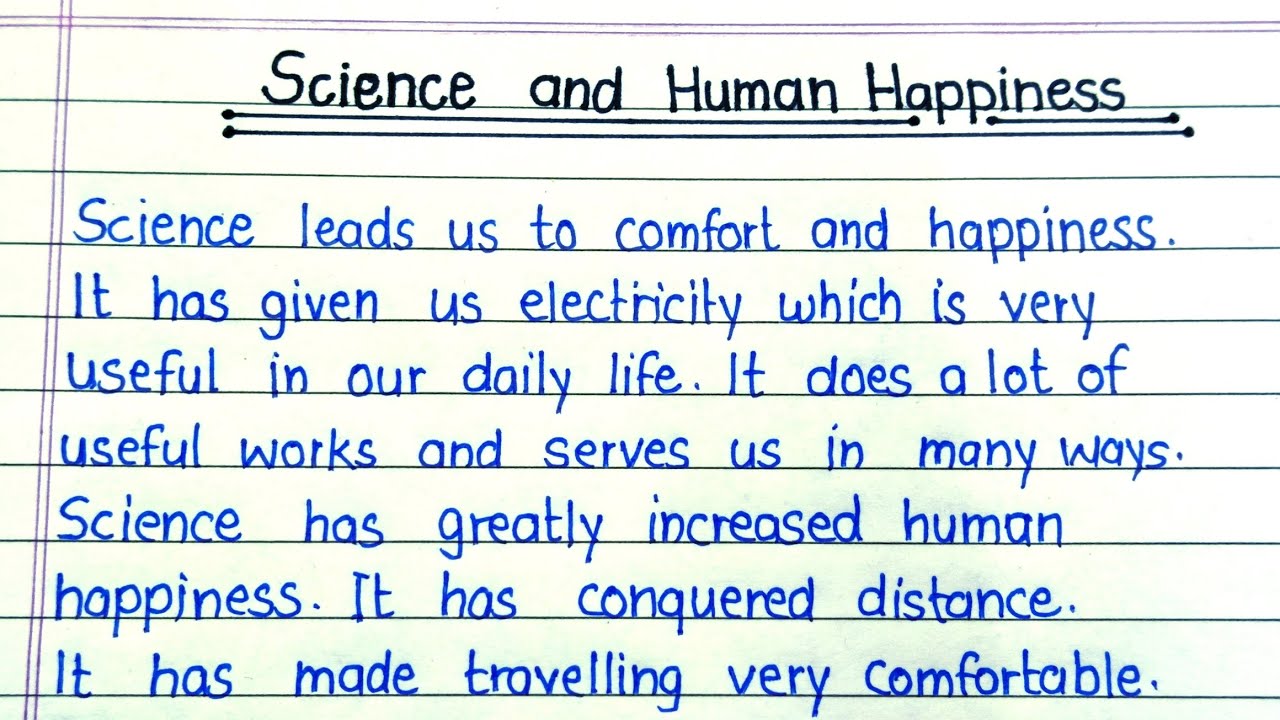 Science and Human Happiness
Science leads us to comfort and happiness.
It has given us electricity which is very
useful in our daily life. It does a lot of
useful works and serves us in many ways.
Science has greatly increased human
happiness. It has conquered distance.
It has made travelling very comfortable.